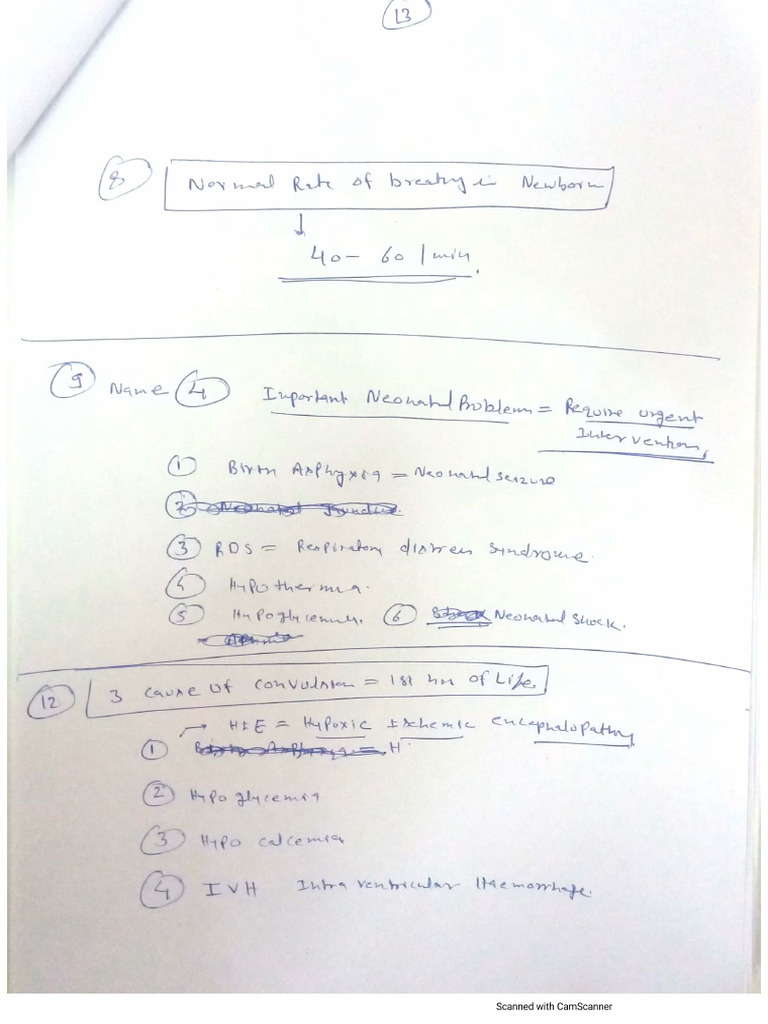 13
8 Normal Rate of breathing in Newborn
↓
40 – 60 / min.
9 Name 4 Important Neonatal Problem = Require urgent
Intervention,
1 Birth Asphyxia = Neonatal seizure
2 Neonatal
3 RDS = Respiratory distress syndrome.
4 Hypothermia.
5 Hypoglycemia. 6 Neonatal shock.
12 3 cause of convulsion = 1st hr of Life
→ HIE = Hypoxic Ischemic encephalopathy
1 H
2 Hypoglycemia
3 Hypo calcemia
4 IVH Intra ventricular Haemorrhage.
Scanned with CamScanner